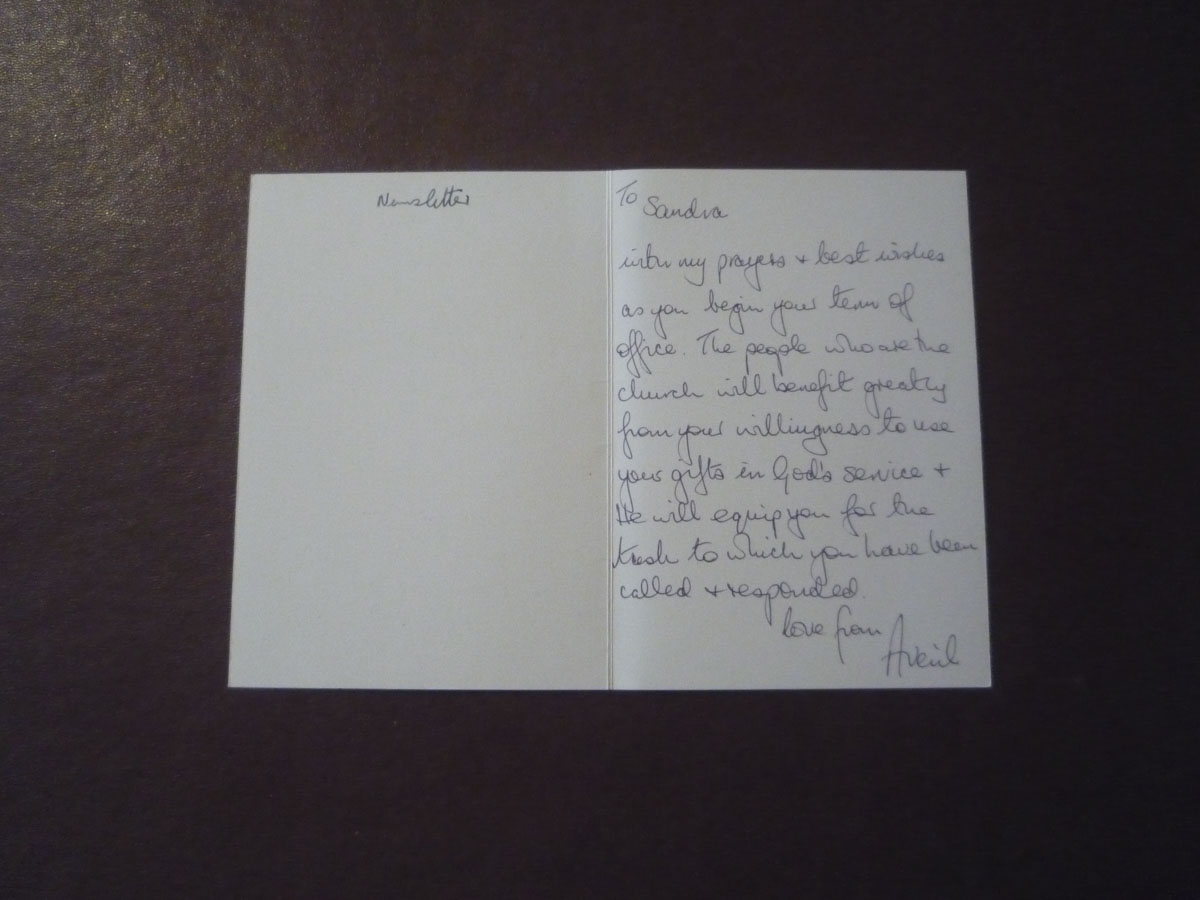 Newsletter
To Sandra
with my prayers + best wishes
as you begin your term of
office. The people who are the
church will benefit greatly
from your willingness to use
your gifts in God's service +
He will equip you for the
task to which you have been
called + responded.
love from
Averil